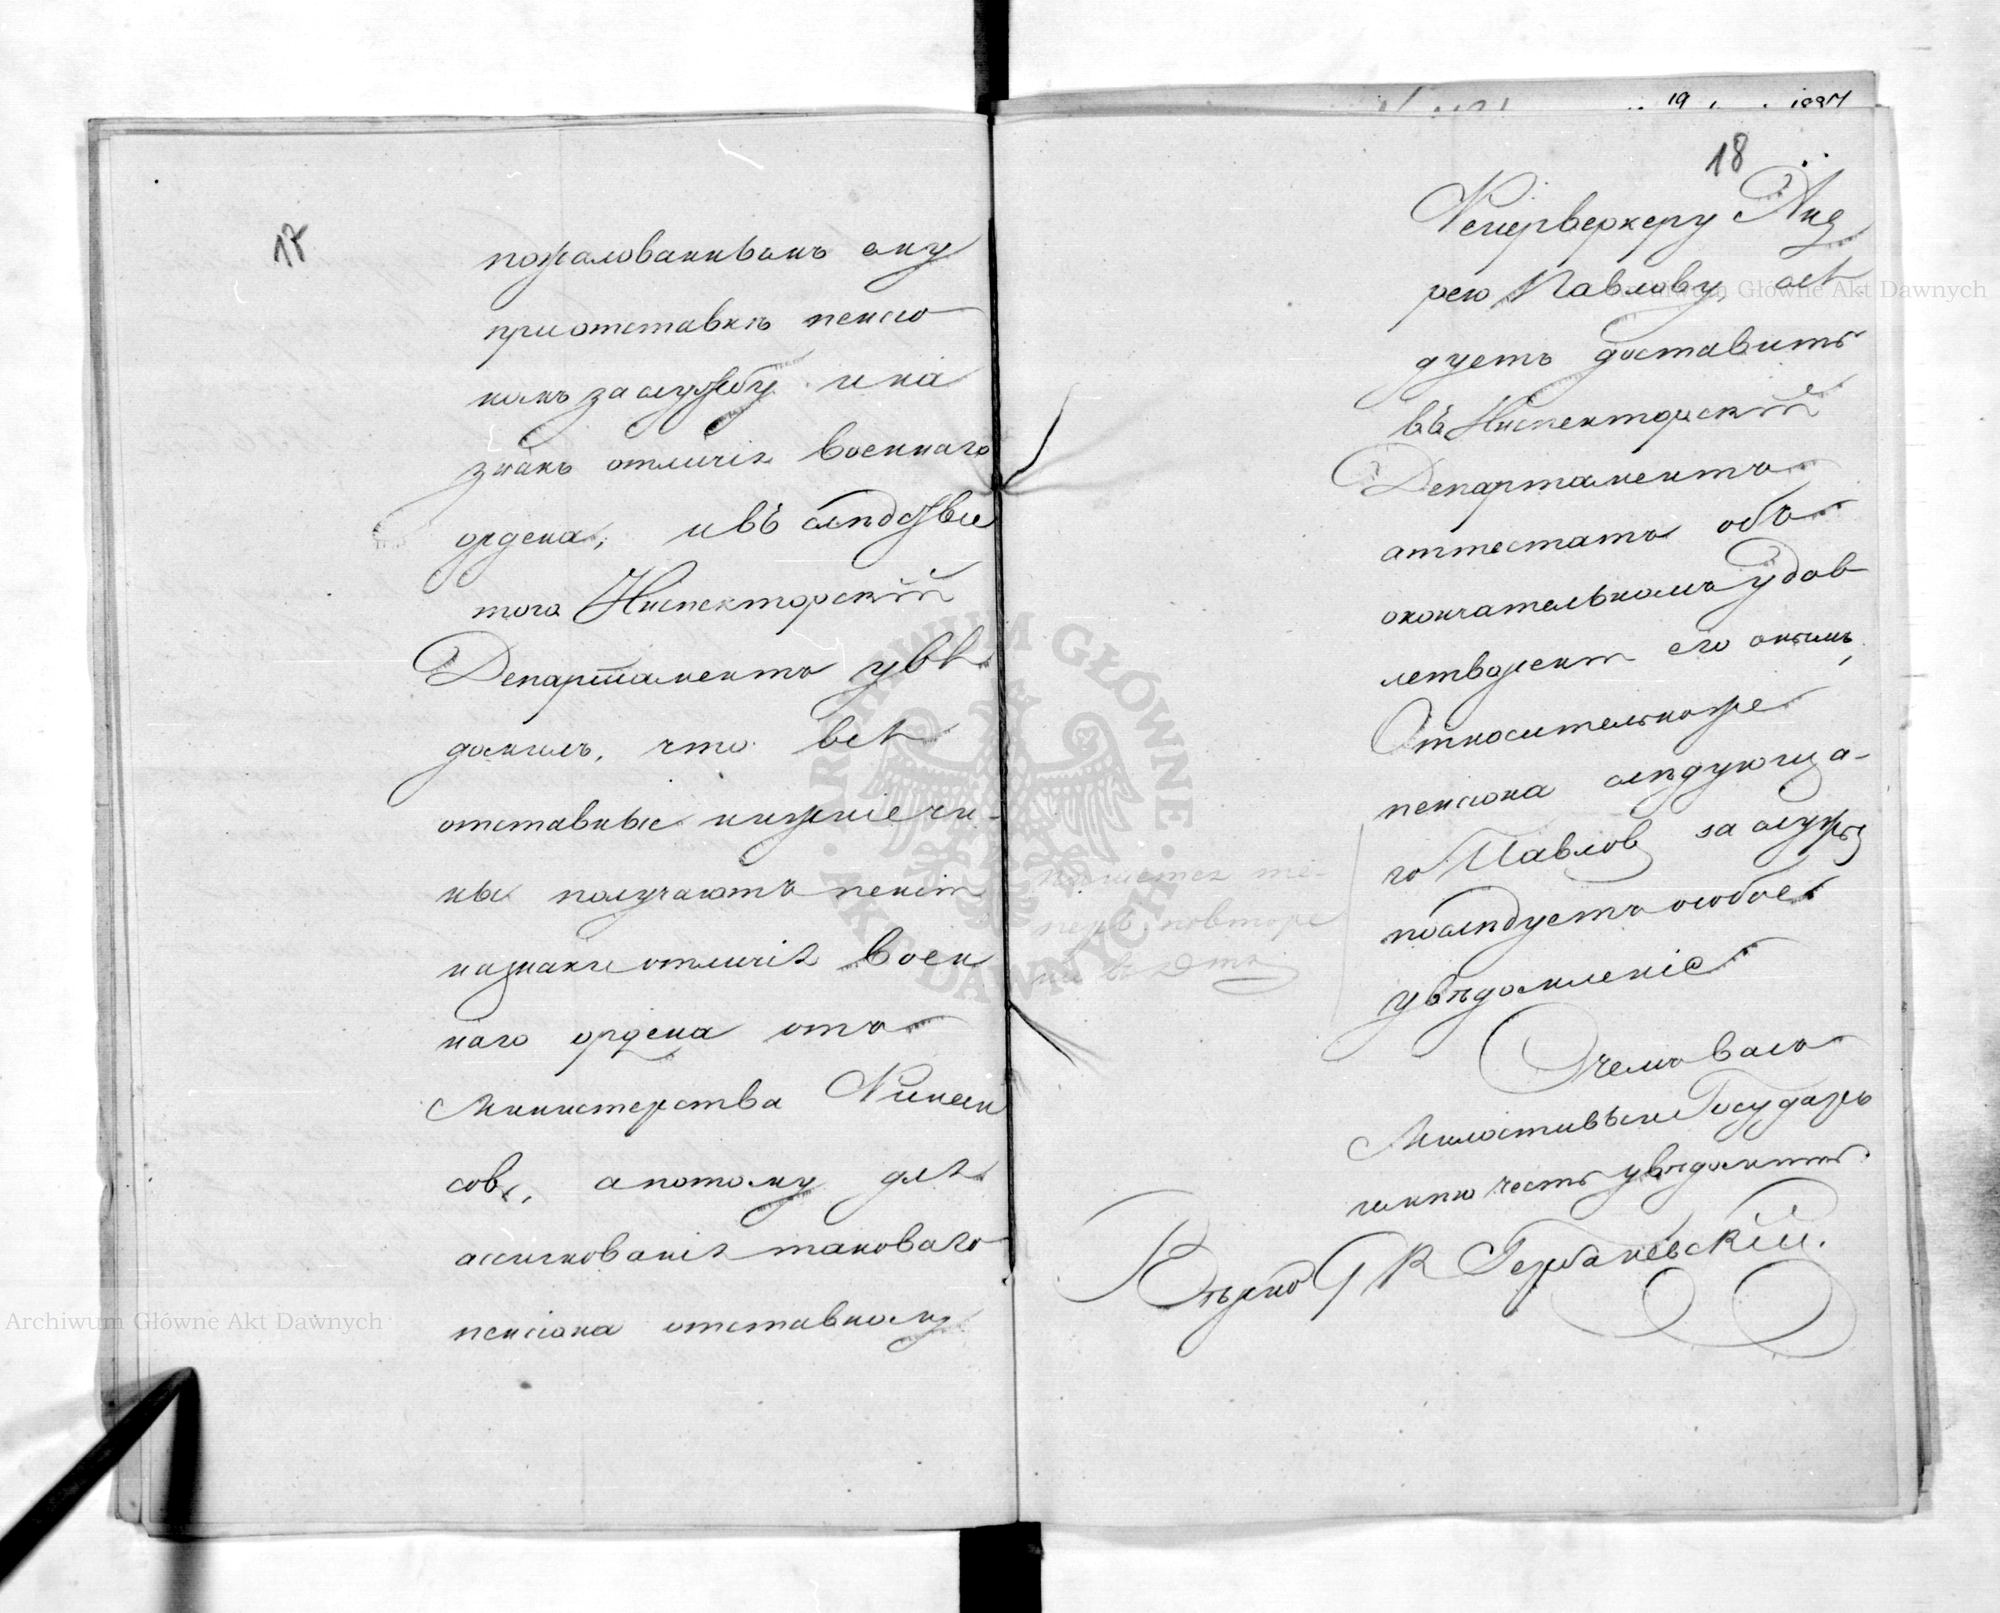 17
пожалованнымъ ему
приотставкѣ пенсіо
номъ за службу и на
знакъ отличія военнаго
ордена, и въ слѣдствіе
того Инспекторскій
Департаментъ увѣ
домилъ, что всѣ
отставные нижніе чи-
ны получаютъ пенсіи
на знаки отличія воен
наго ордена отъ
Министерства Финан
совъ, а потому для
ассигнованія таковаго
пенсіона отставному
19 1887
18
Фейерверкеру Анд
рею Павлову, слѣ
дуетъ доставить
въ Инспекторскій
Департаментъ
аттестатъ объ
окончательномъ удов
летвореніи его онымъ,
Относительно же
пенсіона слѣдующа-
го Павлову за службу
послѣдуетъ особое
увѣдомленіе
О чемъ васъ
Милостивый Государь
имѣю честь увѣдомить.
Вѣрно Гербаневскій.
Archiwum Główne Akt Dawnych
Archiwum Główne Akt Dawnych
ARCHIWUM GŁÓWNE AKT DAWNYCH